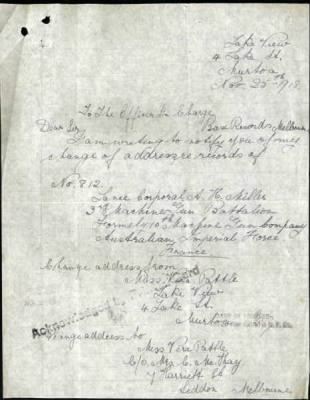 Lake View
4 Lake St.
Murtoa
Nov 25th 1918
To The Officer In Charge
Base Records Melbourne
Dear Sir,
I am writing to notify you of my
change of address re records of
No. 812.
Lance Corporal A. H. Miller
3rd Machine Gun Battalion
Formerly 10th Machine Gun Company
Australian Imperial Force
France
Change address from
Miss Vera Pattle
Lake View
4 Lake St.
Murtoa
Acknowledged by
Change address to
Miss Vera Pattle
C/o Mrs C. M.
7 Harriett St
Seddon Melbourne